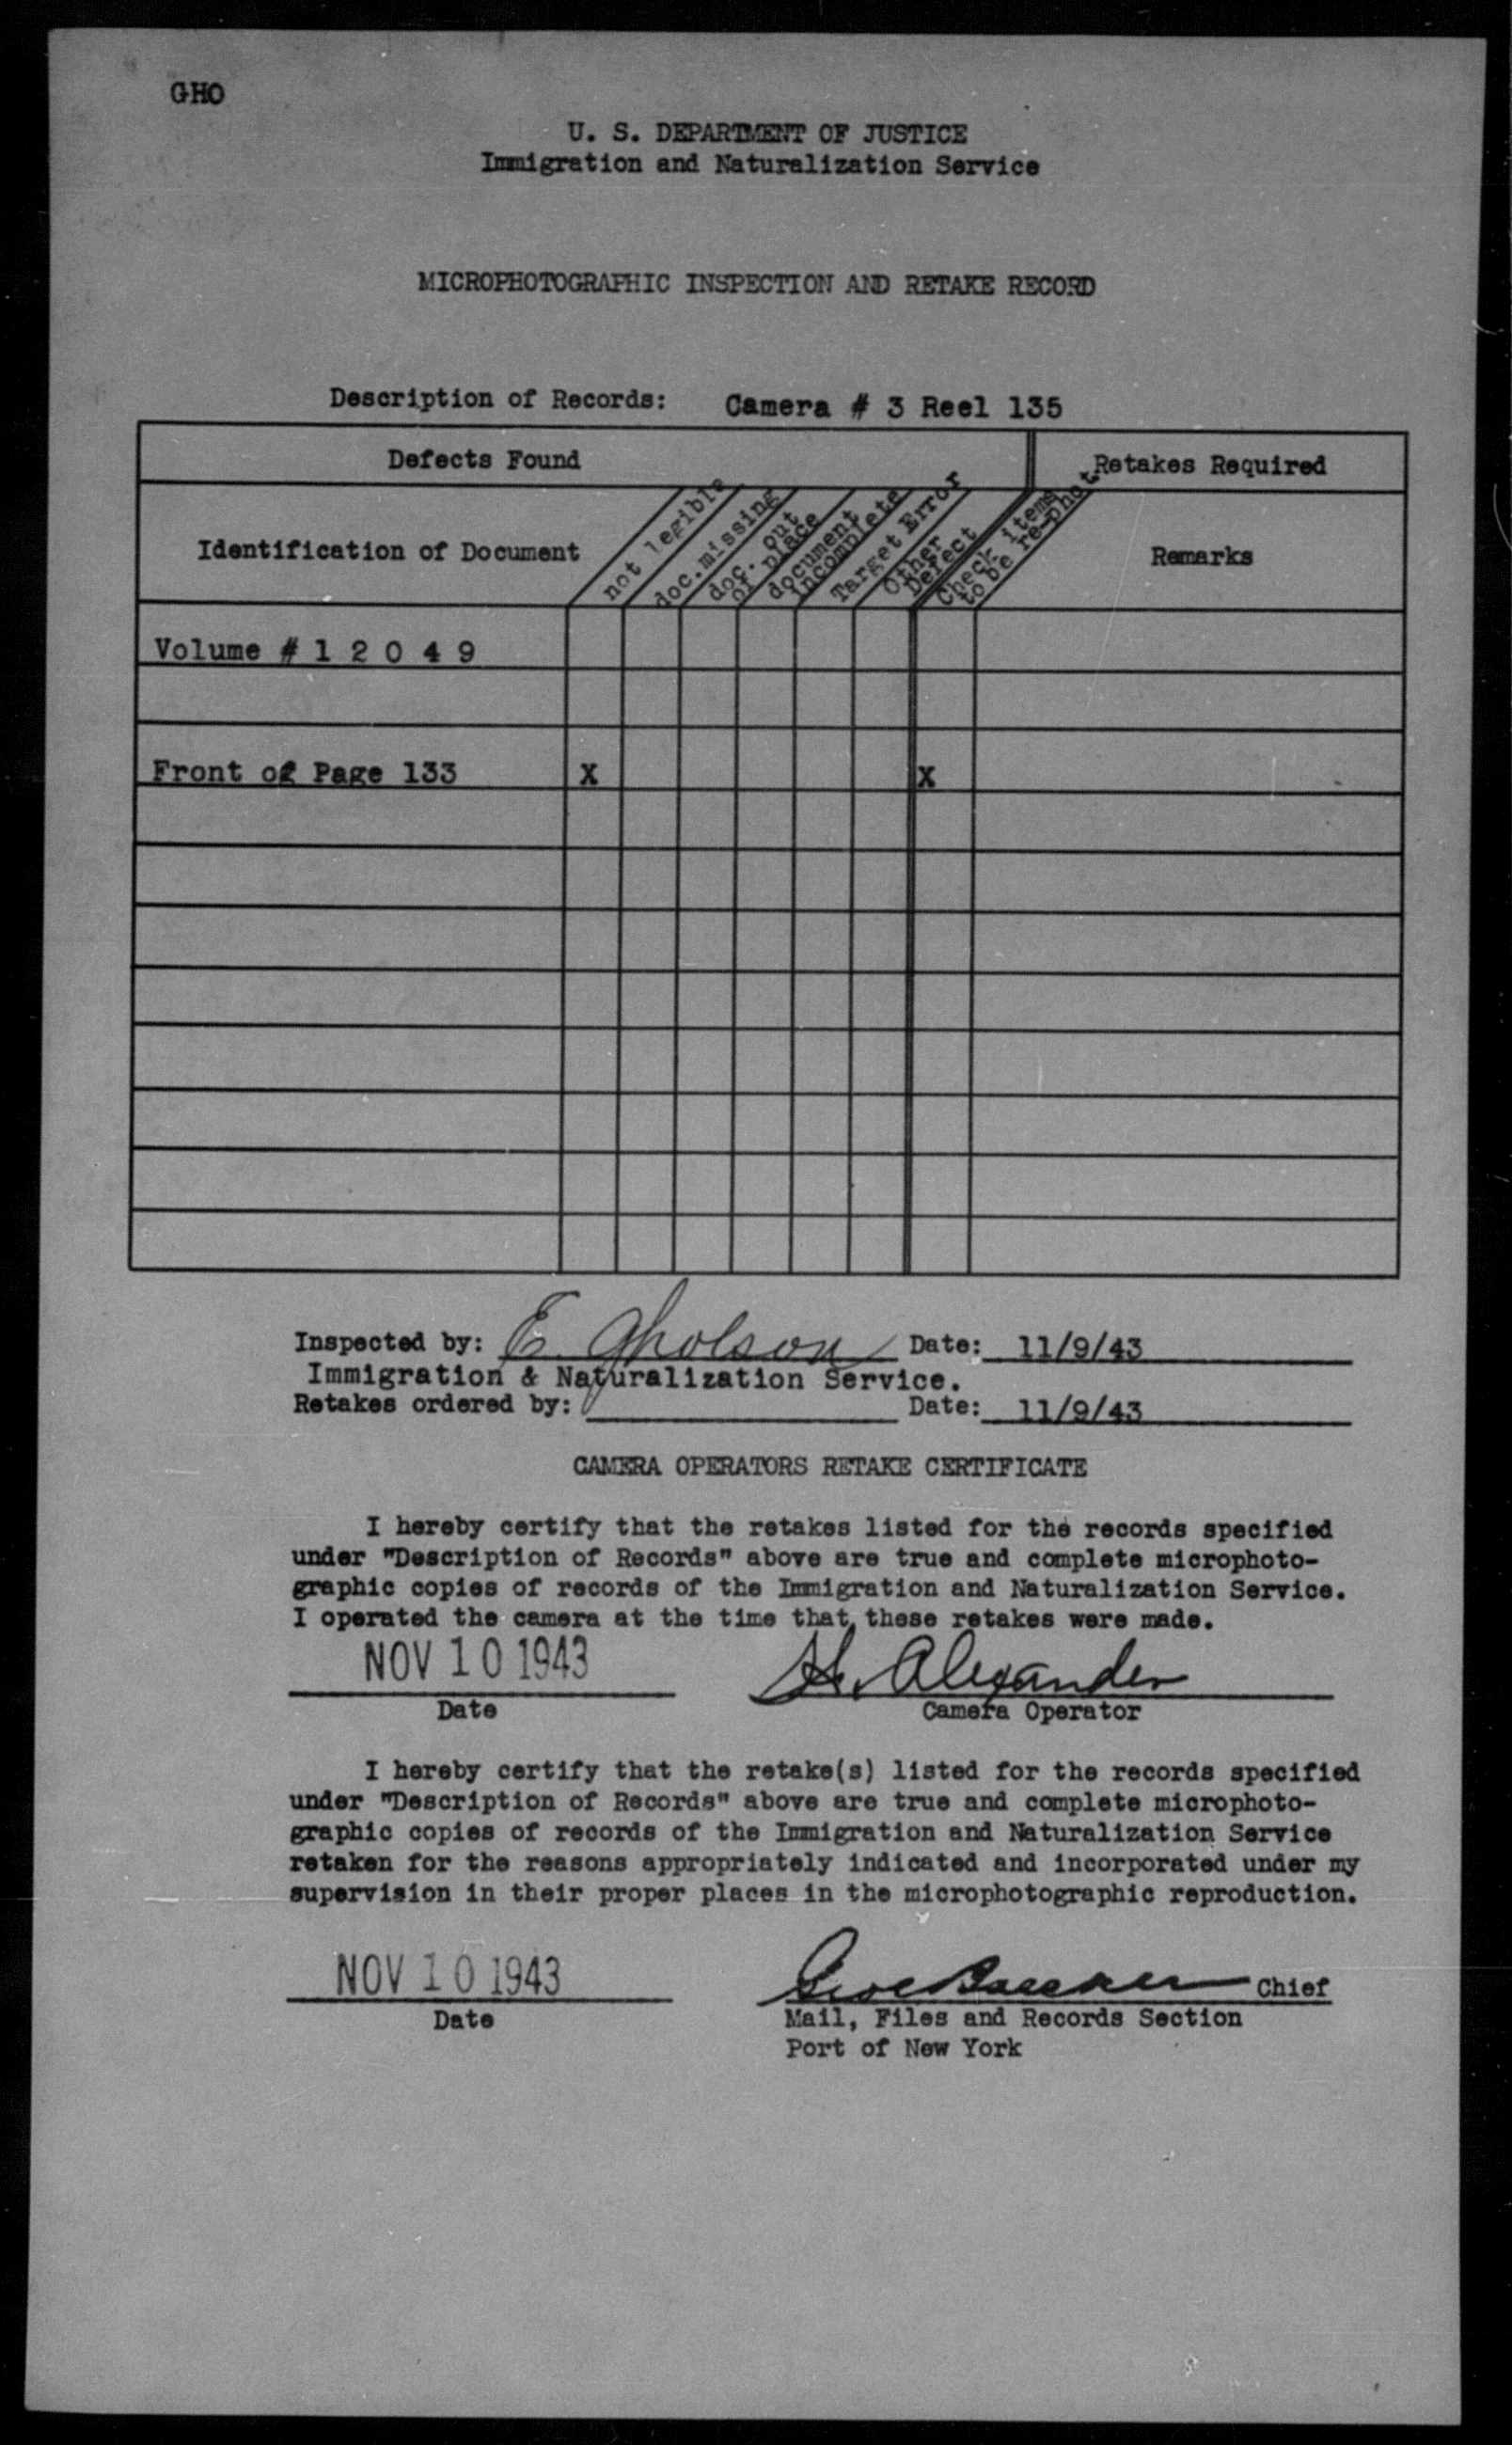 GHO
U. S. DEPARTMENT OF JUSTICE
Immigration and Naturalization Service
MICROPHOTOGRAPHIC INSPECTION AND RETAKE RECORD
Description of Records: Camera # 3 Reel 135
Defects Found
Retakes Required
Identification of Document
not legible
doc. missing
doc. out
of place
document
incomplete
Target Error
Other
Defect
Check items
to be re-phot.
Remarks
Volume # 1 2 0 4 9
Front of Page 133 X X
Inspected by: E. Gholson Date: 11/9/43
Immigration & Naturalization Service.
Retakes ordered by: Date: 11/9/43
CAMERA OPERATORS RETAKE CERTIFICATE
I hereby certify that the retakes listed for the records specified
under "Description of Records" above are true and complete microphoto-
graphic copies of records of the Immigration and Naturalization Service.
I operated the camera at the time that these retakes were made.
NOV 10 1943 H. Alexander
Date Camera Operator
I hereby certify that the retake(s) listed for the records specified
under "Description of Records" above are true and complete microphoto-
graphic copies of records of the Immigration and Naturalization Service
retaken for the reasons appropriately indicated and incorporated under my
supervision in their proper places in the microphotographic reproduction.
NOV 10 1943 Chief
Date Mail, Files and Records Section
Port of New York